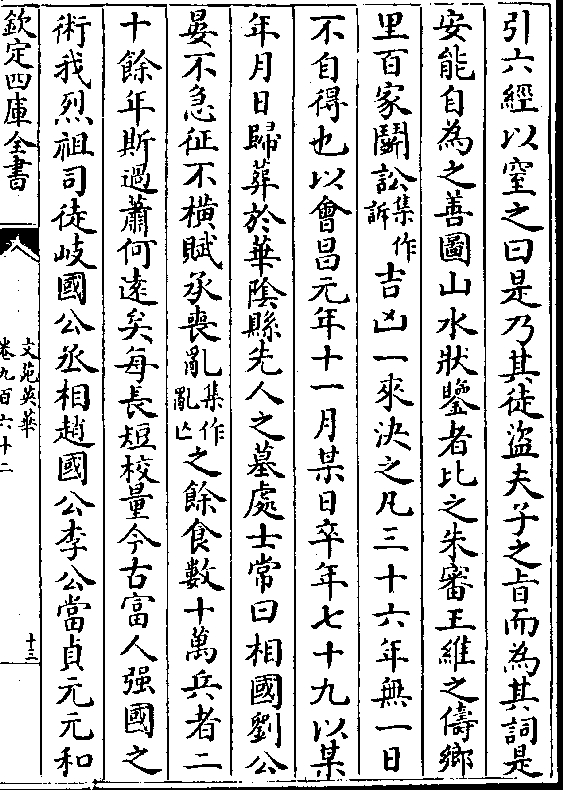 引六經以窒之曰是乃其徒盜夫子之旨而為其詞是
安能自為之善圖山水狀鑒者比之朱審王維之儔鄉
里百家鬬訟集作訴吉凶一來決之凡三十六年無一日
不自得也以會昌元年十一月某日卒年七十九以某
年月日歸葬於華陰縣先人之墓處士常曰相國劉公
晏不急征不橫賦承喪亂集作亂亡之餘食數十萬兵者二
十餘年斯過蕭何遠矣每長短校量今古富人强國之
術我烈祖司徒岐國公丞相趙國公李公當貞元元和
欽定四庫全書
文苑英華
卷九百六十二
十三